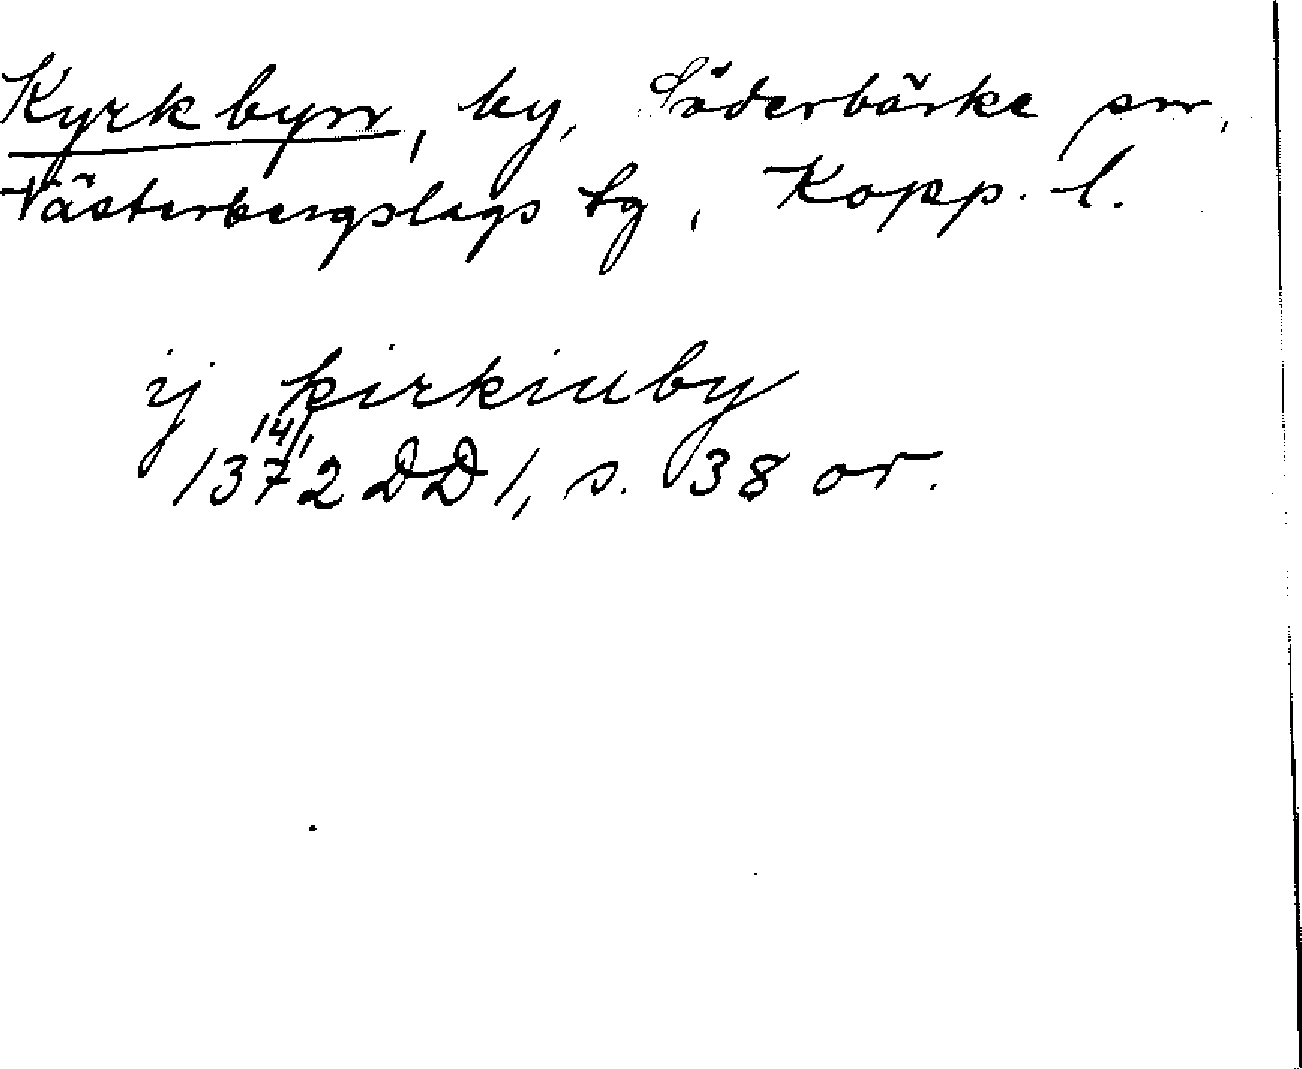 Kyrkbyn, by, Söderbärke sn,
Västerbergslags tg, Kopp. l.
ij kirkiuby
14/1
1372 DD 1, s. 38 or.